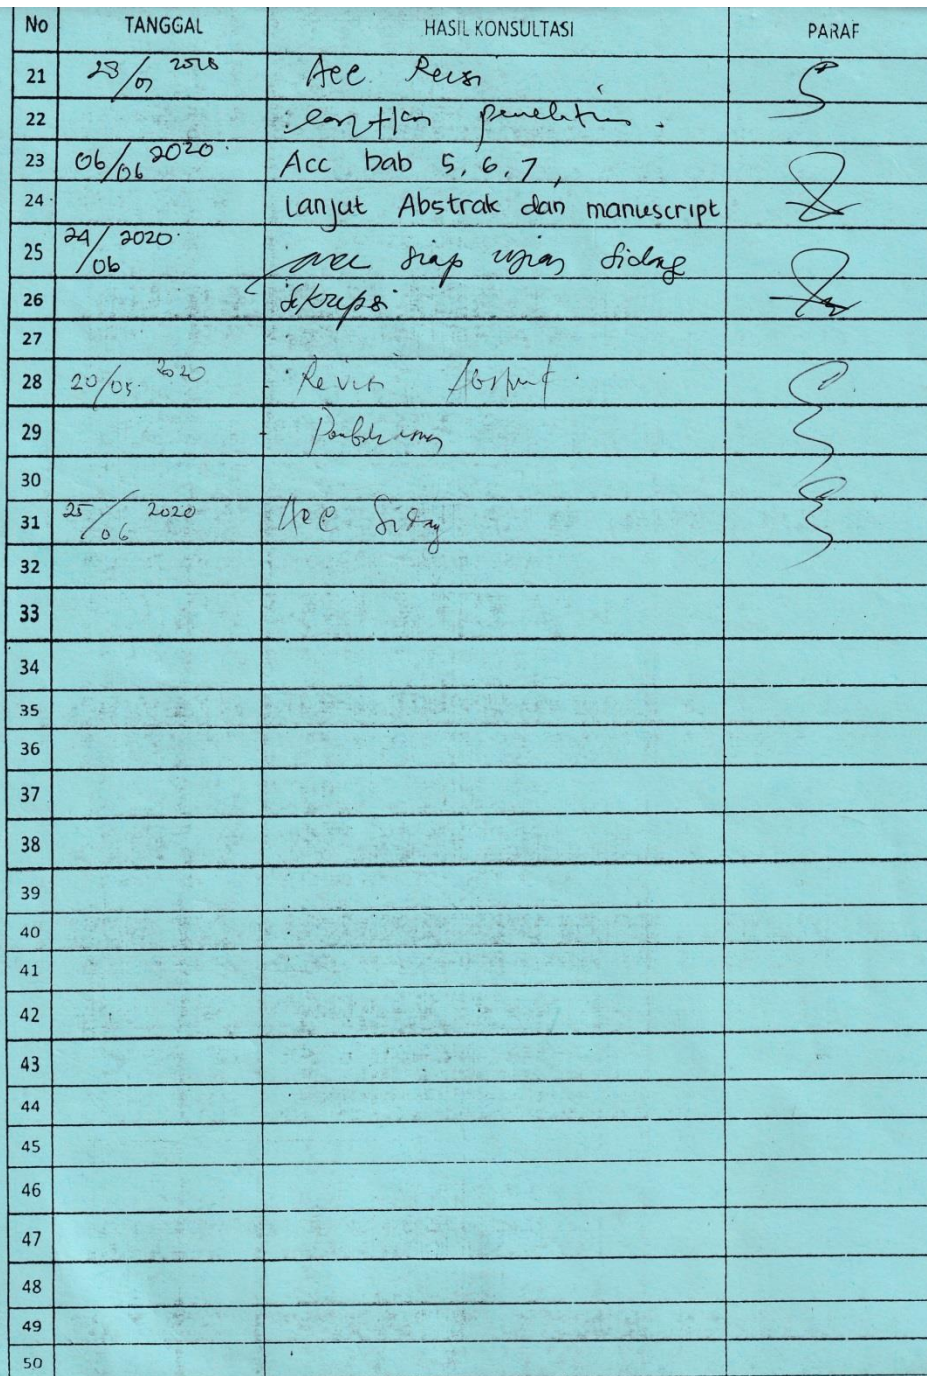 No TANGGAL HASIL KONSULTASI PARAF
21 Acc Revisi
22 penelitian.
23 06/06 2020. Acc bab 5, 6, 7,
24 Lanjut Abstrak dan manuscript
25 24/06 2020. acc siap ujian sidang
26 skripsi
27
28 20/05. 2020 Revisi Abstrak.
29
30
31 25/06 2020 Acc Sidang
32
33
34
35
36
37
38
39
40
41
42
43
44
45
46
47
48
49
50